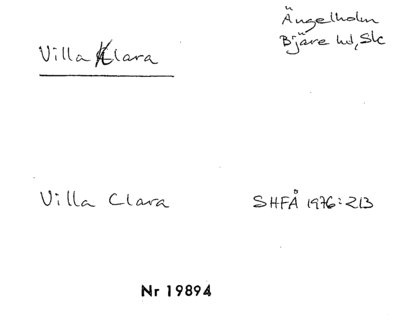 Villa Klara
Ängelholm
Bjäre hd, Sk
Villa Clara
SHFÅ 1976:213
Nr 19894